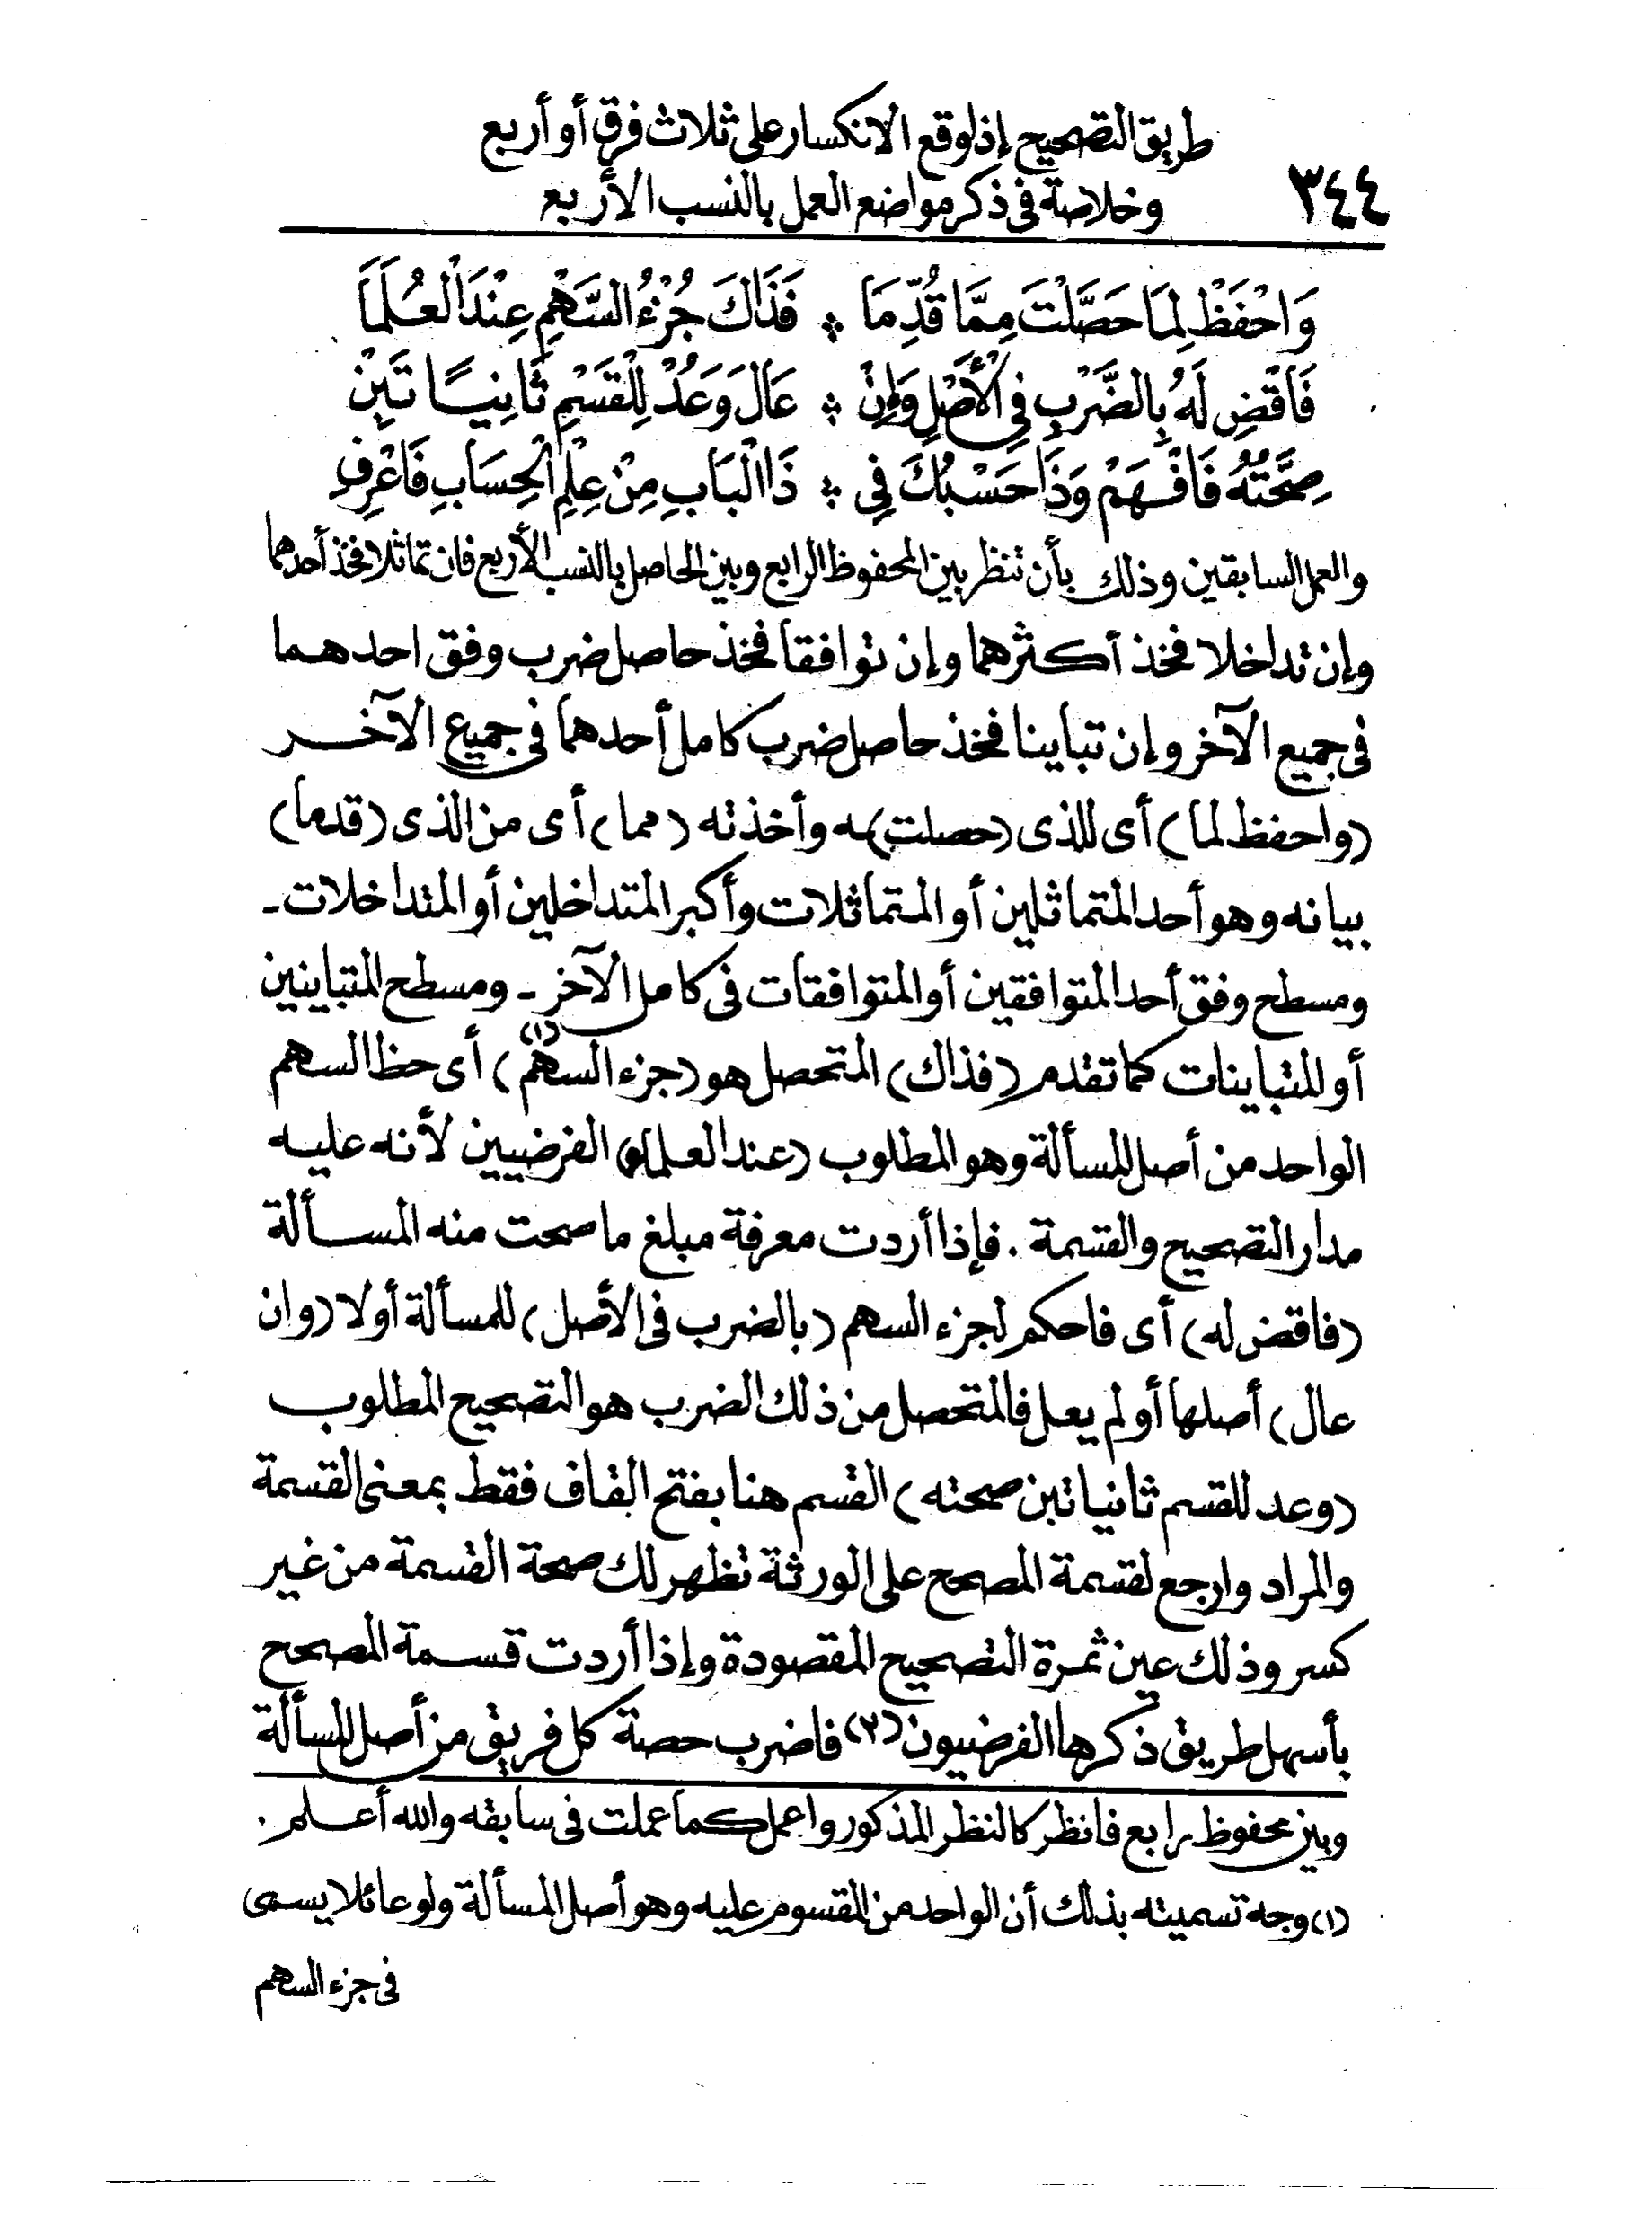 طريق التصحيح إذا وقع الانكسار على ثلاث فرق أو أربع
٣٤٤
وخلاصة فى ذكر مواضع العمل بالنسب الأربع
وَاحْفَظْ لِمَا حَصَّلْتَ مِمَّا قُدِّمَا * فَذَاكَ جُزْءُ السَّهْمِ عِنْدَ الْعُلَمَا
فَاقْضِ لَهُ بِالضَّرْبِ فِي الْأَصْلِ وَإِنْ * عَالَ وَعُدْ لِلْقَسْمِ ثَانِيًا تَبِنْ
صِحَّتُهُ فَافْهَمْ وَذَا حَسْبُكَ فِي * ذَا الْبَابِ مِنْ عِلْمِ الْحِسَابِ فَاعْرِفِ
والعمل السابقين وذلك بأن تنظر بين المحفوظ الرابع وبين الحاصل بالنسب الأربع فان تماثلا فخذ أحدهما
وإن تداخلا فخذ أكثرهما وإن توافقا فخذ حاصل ضرب وفق احدهما
فى جميع الآخر وإن تباينا فخذ حاصل ضرب كامل أحدهما فى جميع الآخر
(واحفظ لما) أى للذى (حصلت) ـه وأخذته (مما) أى من الذى (قدما)
بيانه وهو أحد المتماثلين أو المتماثلات وأكبر المتداخلين أو المتداخلات ـ
ومسطح وفق أحد المتوافقين أو المتوافقات فى كامل الآخر ـ ومسطح المتباينين
أو المتباينات كما تقدم (فذاك) المتحصل هو (جزء السهم) (١) أى حظ السهم
الواحد من أصل المسألة وهو المطلوب (عند العلما) الفرضيين لأنه عليه
مدار التصحيح والقسمة . فإذا أردت معرفة مبلغ ما صحت منه المسألة
(فاقض له) أى فاحكم لجزء السهم (بالضرب فى الأصل) للمسألة أولا (وان
عال) أصلها أو لم يعل فالمتحصل من ذلك الضرب هو التصحيح المطلوب
(وعد للقسم ثانيا تبن صحته) القسم هنا بفتح القاف فقط بمعنى القسمة
والمراد وارجع لقسمة المصحح على الورثة تظهر لك صحة القسمة من غير
كسر وذلك عين ثمرة التصحيح المقصودة وإذا أردت قسمة المصحح
بأسهل طريق ذكرها الفرضيون (٢) فاضرب حصة كل فريق من أصل المسألة
وبين محفوظ رابع فانظر كالنظر المذكور واعمل كما عملت فى سابقه والله أعلم .
(١) وجه تسميته بذلك أن الواحد من المقسوم عليه وهو أصل المسألة ولو عائلا يسمى
فى جزء السهم